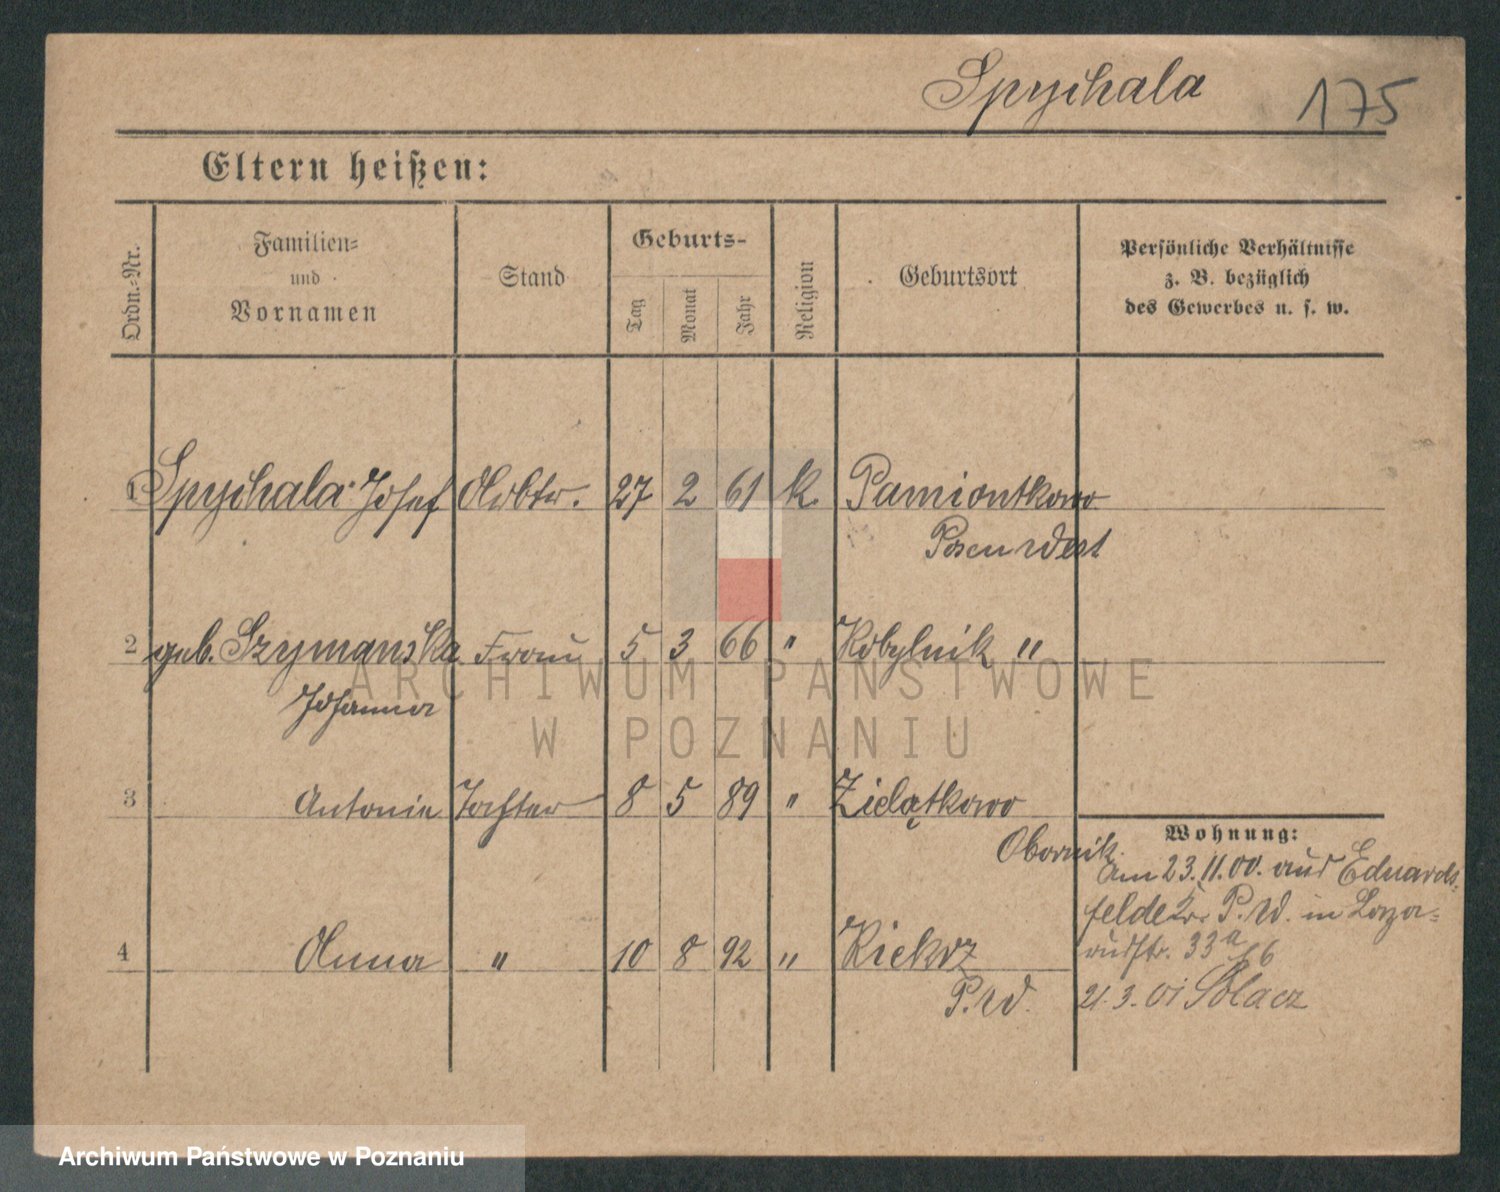 Spychala 175
Eltern heißen:
Ordn.-Nr.
Familien-
und
Vornamen
Stand
Geburts-
Tag
Monat
Jahr
Religion
Geburtsort
Persönliche Verhältnisse
z. B. bezüglich
des Gewerbes u. s. w.
1 Spychala Josef Arbtr. 27 2 61 k Pamiontkowo
Posen West
2 geb. Szymanska Frau 5 3 66 " Kobylnik "
Johanna
3 Antonie Tochter 8 5 89 " Zielątkowo
Obornik
Wohnung:
Am 23.11.00. aus Eduards-
felde Kr. P.W. in Laza-
russtr. 33a
4 Anna " 10 8 92 " Kiekrz
P.W.
21.3.01 Solacz
ARCHIWUM PAŃSTWOWE
W POZNANIU
Archiwum Państwowe w Poznaniu